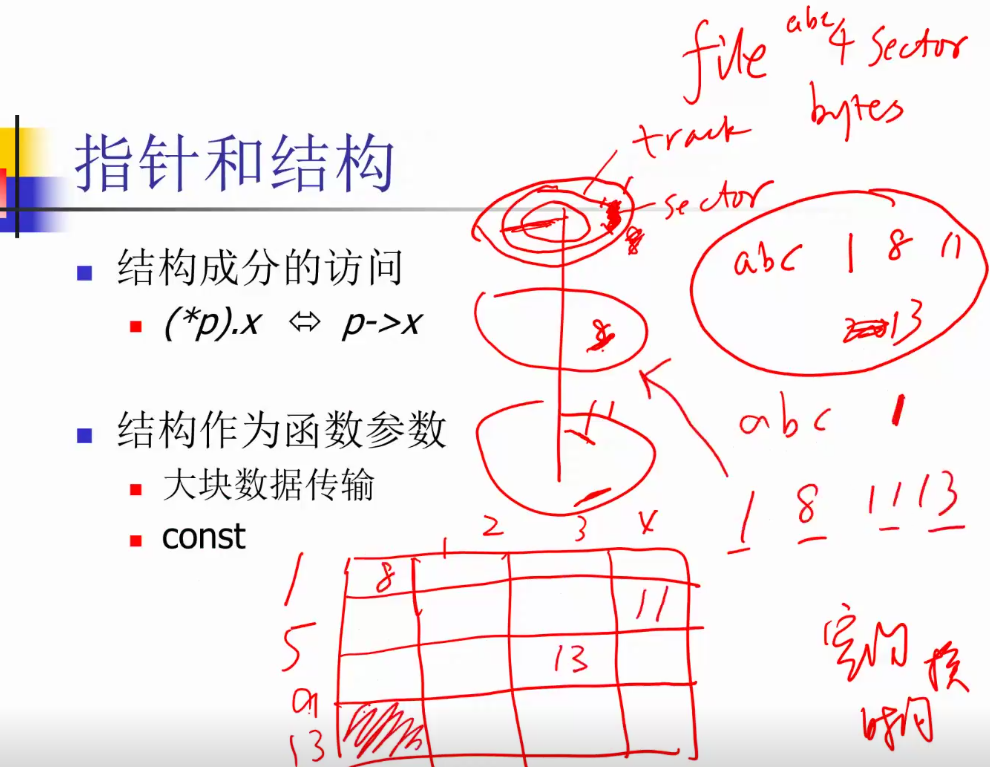 file abc 4 sector
bytes
track
sector
指针和结构
结构成分的访问
(*p).x ⇔ p->x
结构作为函数参数
大块数据传输
const
8
8
11
abc 1 8 11
13
abc 1
1 8 11 13
1 2 3 4
1 8
11
5 13
9
13
空间换
时间